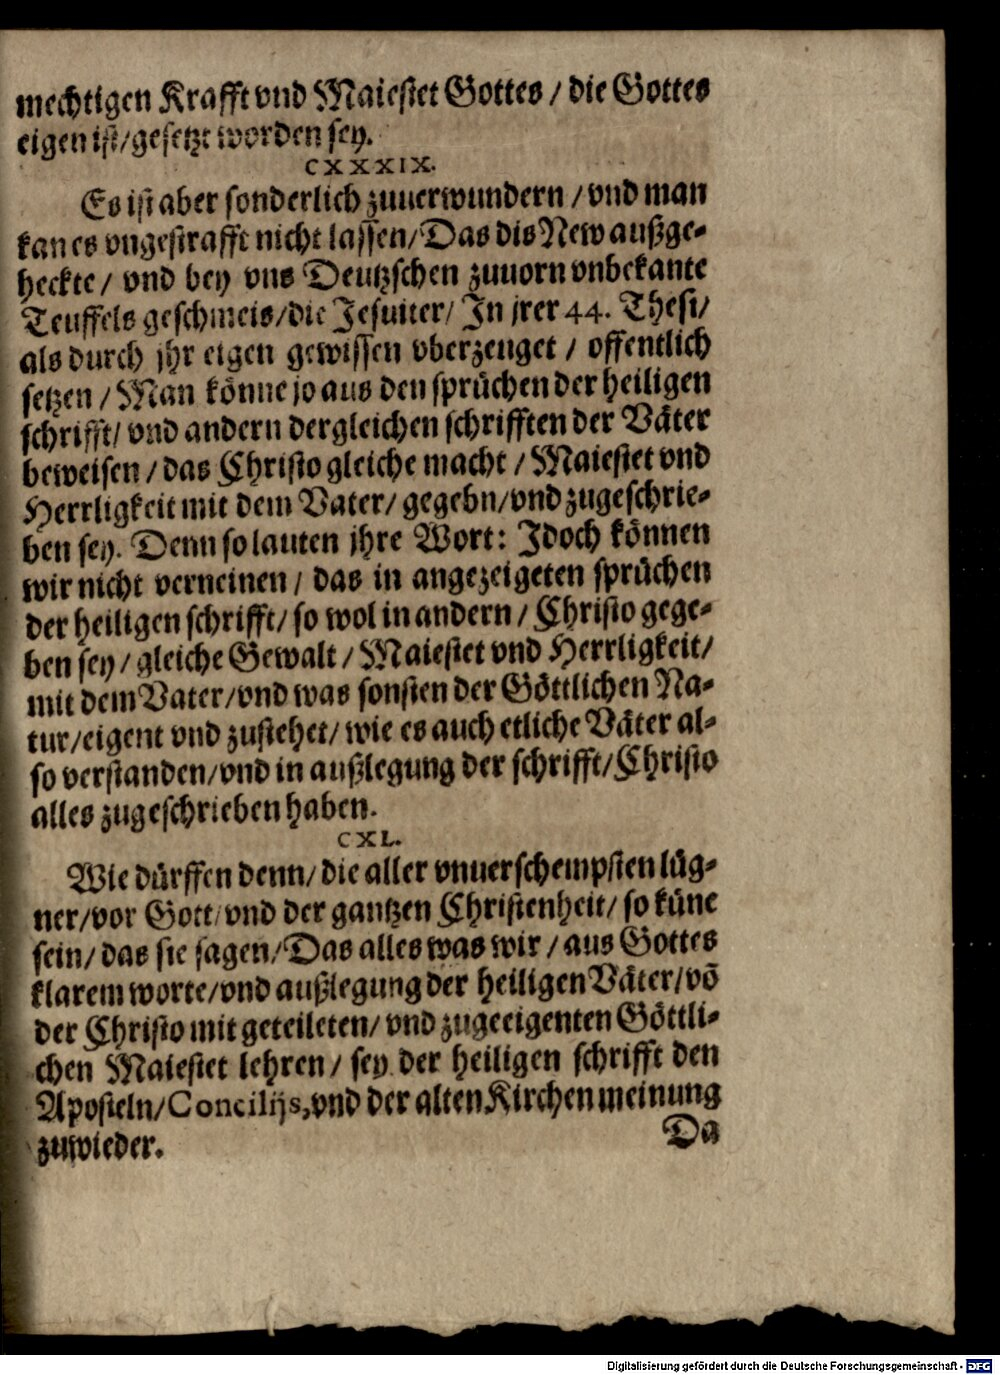 mechtigen Krafft vnd Maiestet Gottes / die Gottes
eigen ist/gesetzt worden sey.
CXXXIX.
Es ist aber sonderlich zuuerwundern / vnd man
kan es vngestrafft nicht lassen/Das dis New außge-
heckte / vnd bey vns Deutzschen zuuorn vnbekante
Teuffels geschmeis/die Jesuiter/ In jrer 44. Thesi/
als durch jhr eigen gewissen vberzeuget / offentlich
setzen / Man könne jo aus den sprüchen der heiligen
schrifft/ vnd andern dergleichen schrifften der Väter
beweisen / das Christo gleiche macht / Maiestet vnd
Herrligkeit mit dem Vater/ gegebn/vnd zugeschrie-
ben sey. Denn so lauten jhre Wort: Jdoch können
wir nicht verneinen / das in angezeigeten sprüchen
der heiligen schrifft/ so wol in andern / Christo gege-
ben sey / gleiche Gewalt / Maiestet vnd Herrligkeit/
mit dem Vater/vnd was sonsten der Göttlichen Na-
tur/eigent vnd zustehet/ wie es auch etliche Väter al-
so verstanden/vnd in außlegung der schrifft/Christo
alles zugeschrieben haben.
CXL.
Wie dürffen denn/ die aller vnuerschempsten lüg-
ner/vor Gott/vnd der gantzen Christenheit/ so küne
sein/ das sie sagen/Das alles was wir / aus Gottes
klarem worte/vnd außlegung der heiligen Väter/võ
der Christo mit geteileten/ vnd zugeeigenten Göttli-
chen Maiestet lehren / sey der heiligen schrifft den
Aposteln/Concilijs,vnd der alten Kirchen meinung
zuwieder.
Da
Digitalisierung gefördert durch die Deutsche Forschungsgemeinschaft - DFG